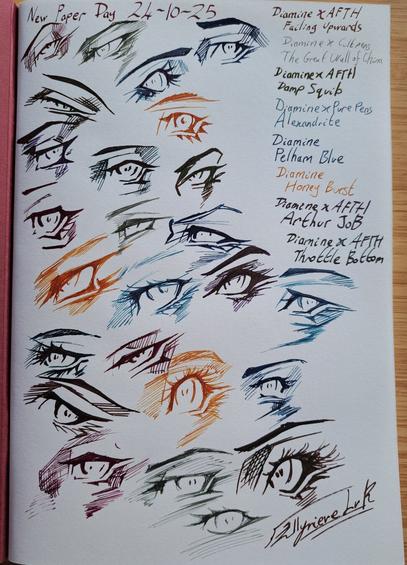 New Paper Day 24-10-25
Diamine x AFTH
Failing Upwards
Diamine x Cult pens
The Great Wall of
Diamine x AFTH
Damp Squib
Diamine x Pure Pens
Alexandrite
Diamine
Pelham Blue
Diamine
Honey Burst
Diamine x AFTH
Arthur Job
Diamine x AFTH
Throttle Bottom